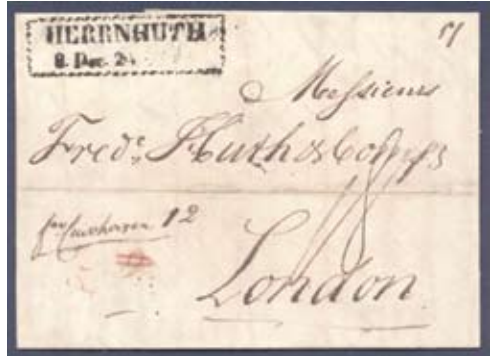 HERRNHUTH
8. Dec. 24
51
Messieurs
Fred: Huth & Comp
per Cuxhaven 12
London